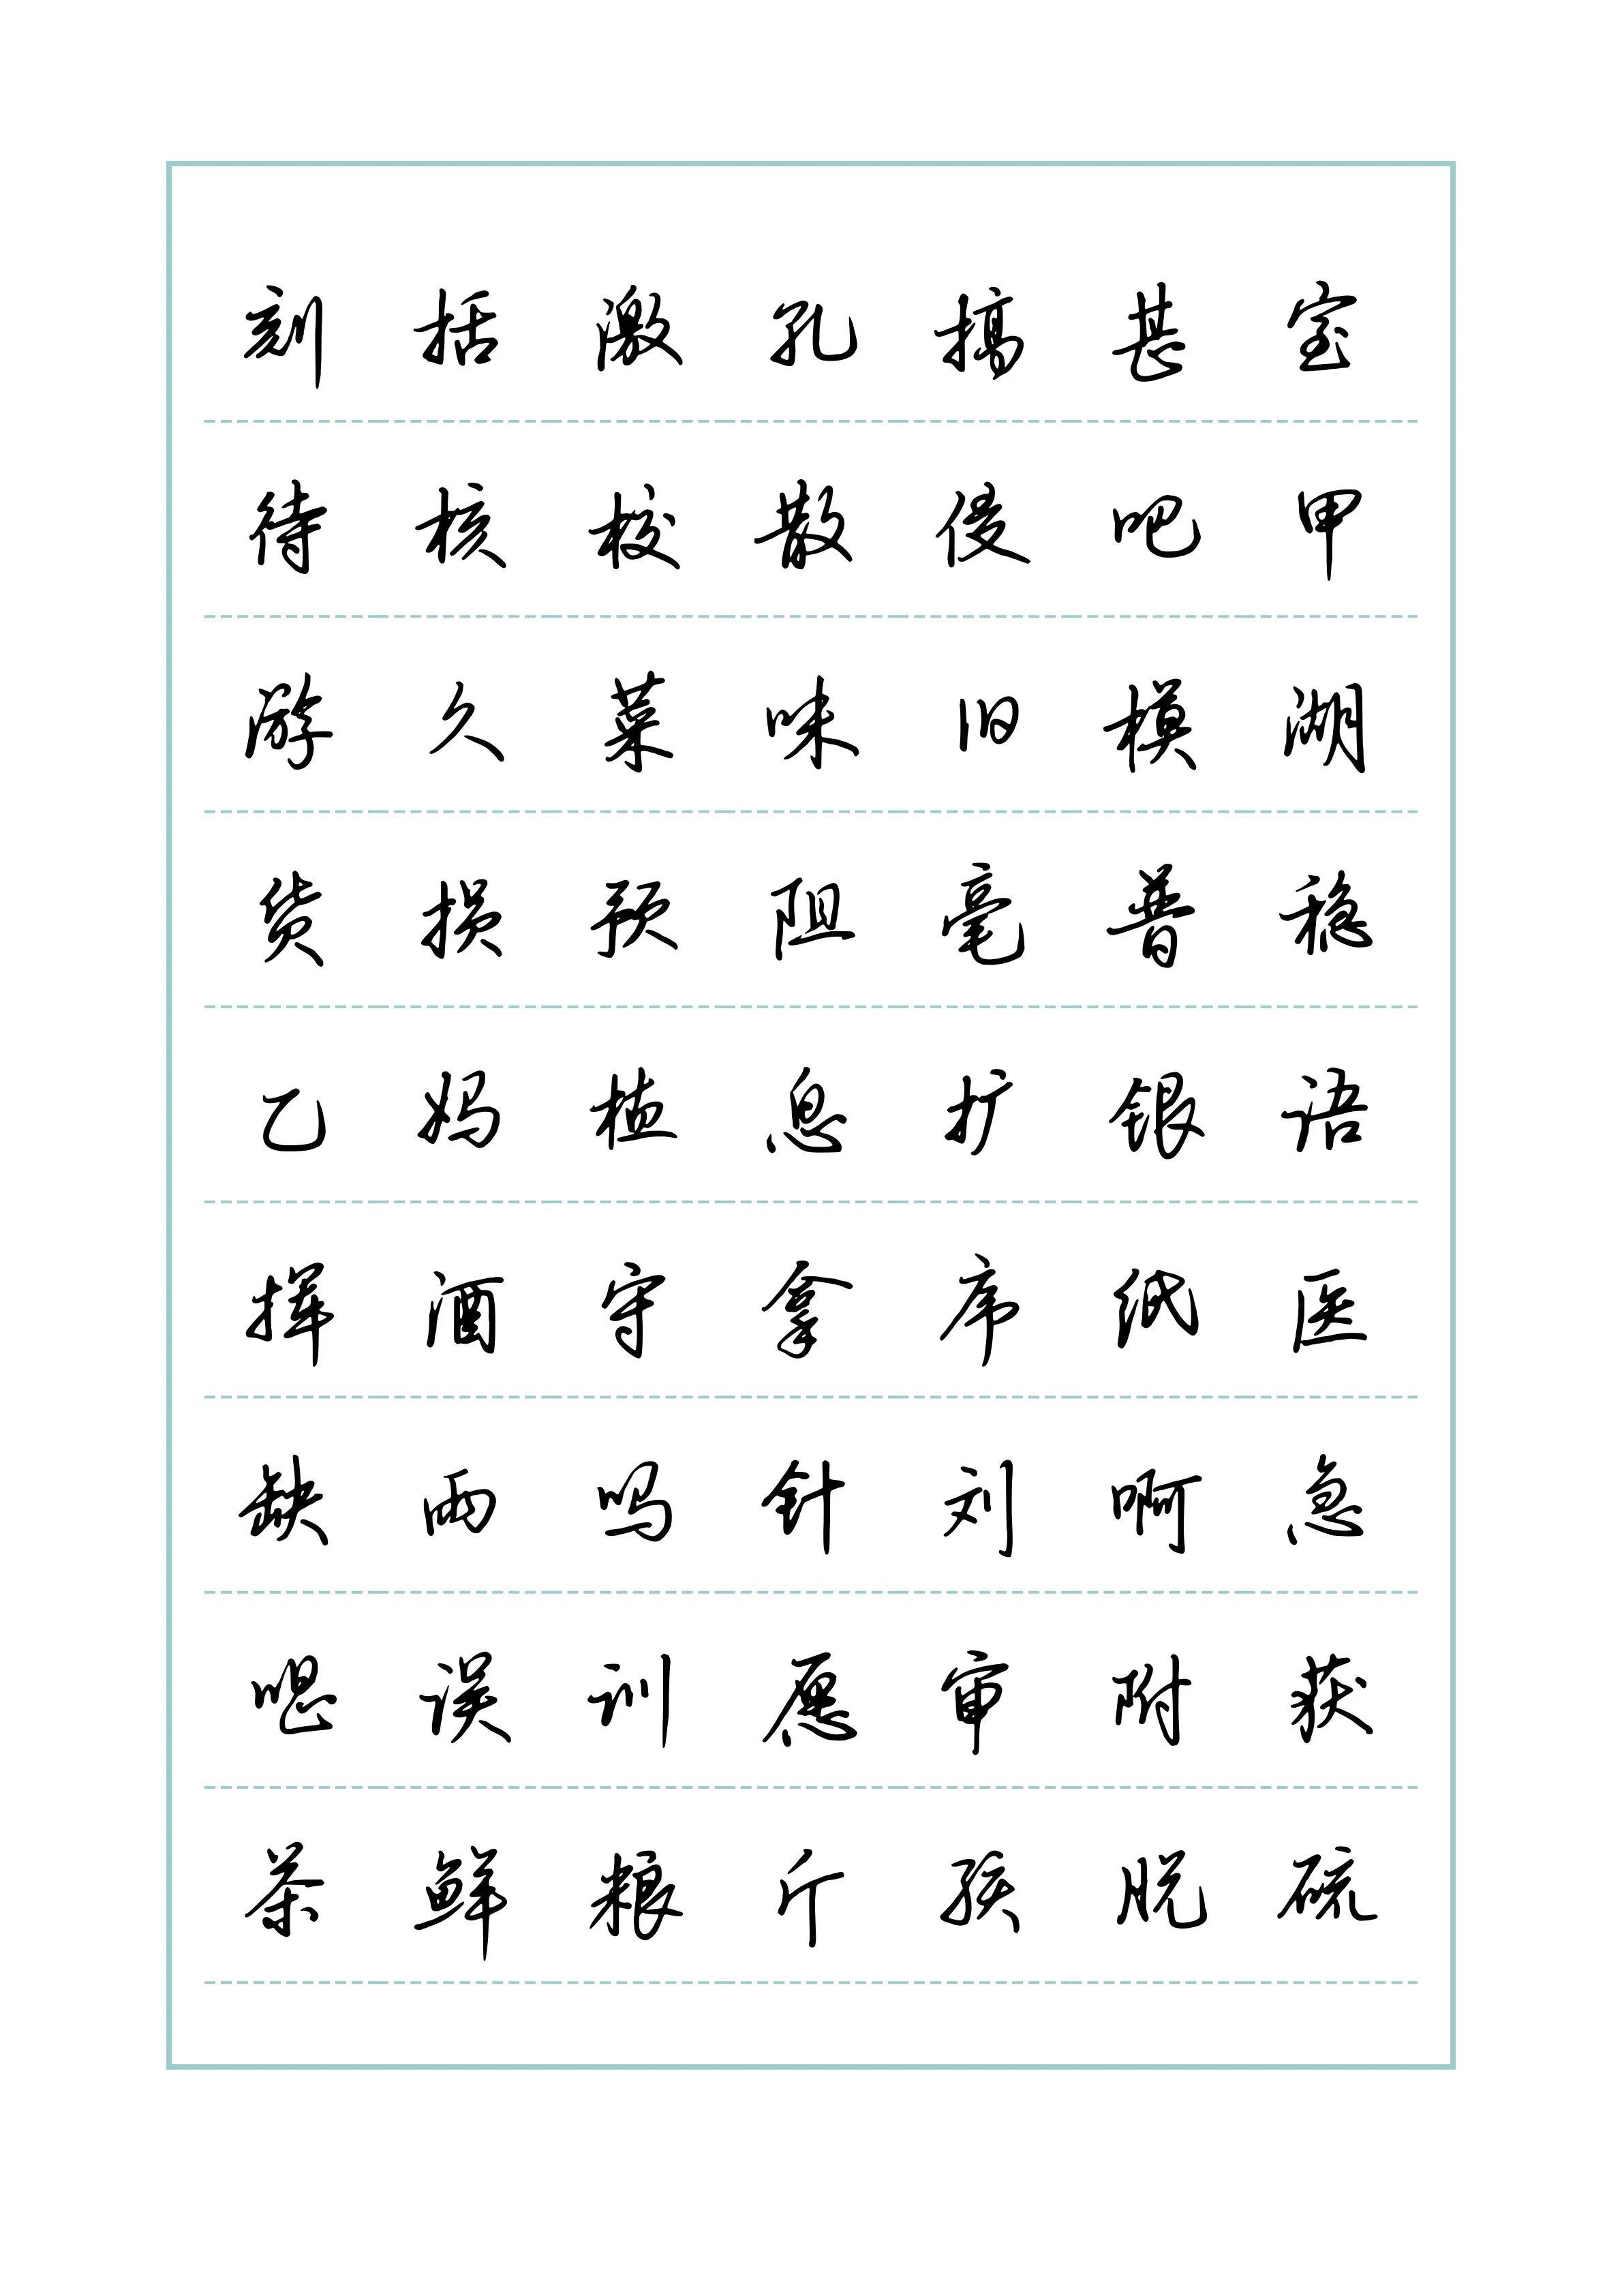 刻 括 激 孔 搞 甚 室
待 核 校 散 侵 吧 甲
游 久 菜 味 旧 模 湖
货 损 预 阻 毫 普 稳
乙 妈 植 息 扩 银 语
挥 酒 守 拿 序 纸 医
缺 雨 吗 针 刘 啊 急
唱 误 训 愿 审 附 获
茶 鲜 粮 斤 孩 脱 硫